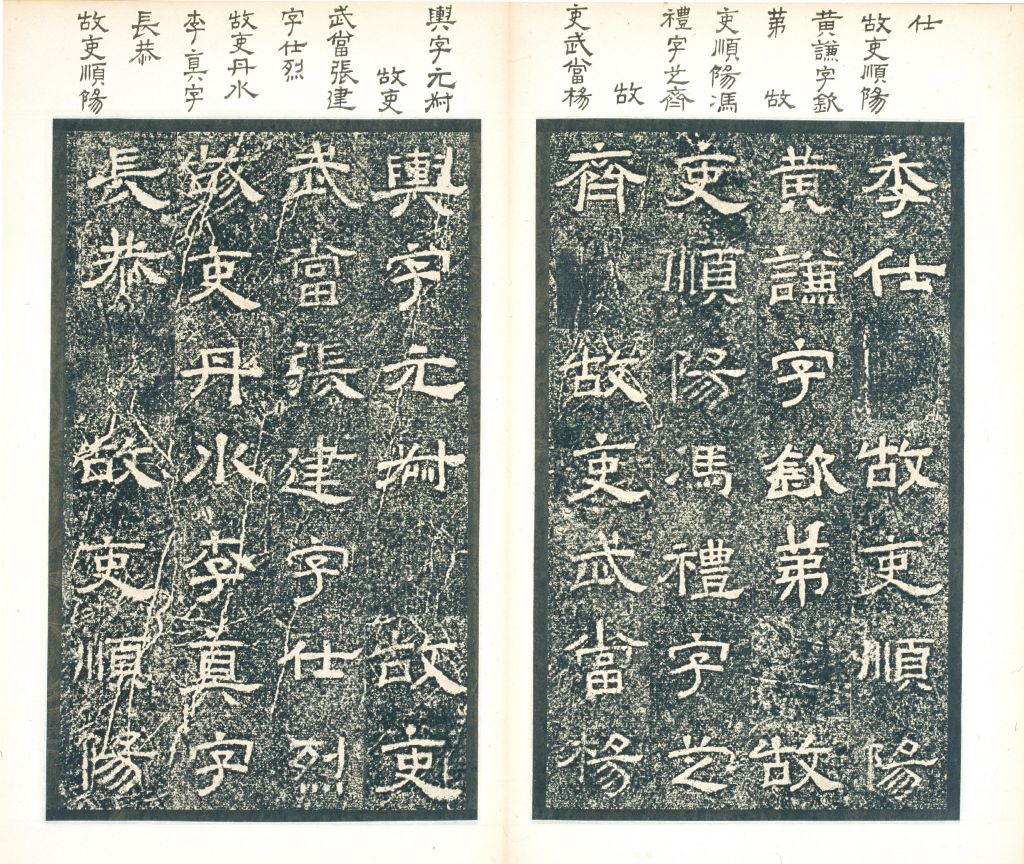 仕
故吏順陽
黃謙字欽
苐 故
吏順陽馮
禮字芝齊
故
吏武當楊
季仕 故吏順陽
黃謙字欽苐 故
吏順陽馮禮字芝
齊 故吏武當楊
輿字元
故吏
武當張建
字仕烈
故吏丹水
李真字
長恭
故吏順陽
輿字元 故吏
武當張建字仕烈
故吏丹水李真字
長恭 故吏順陽